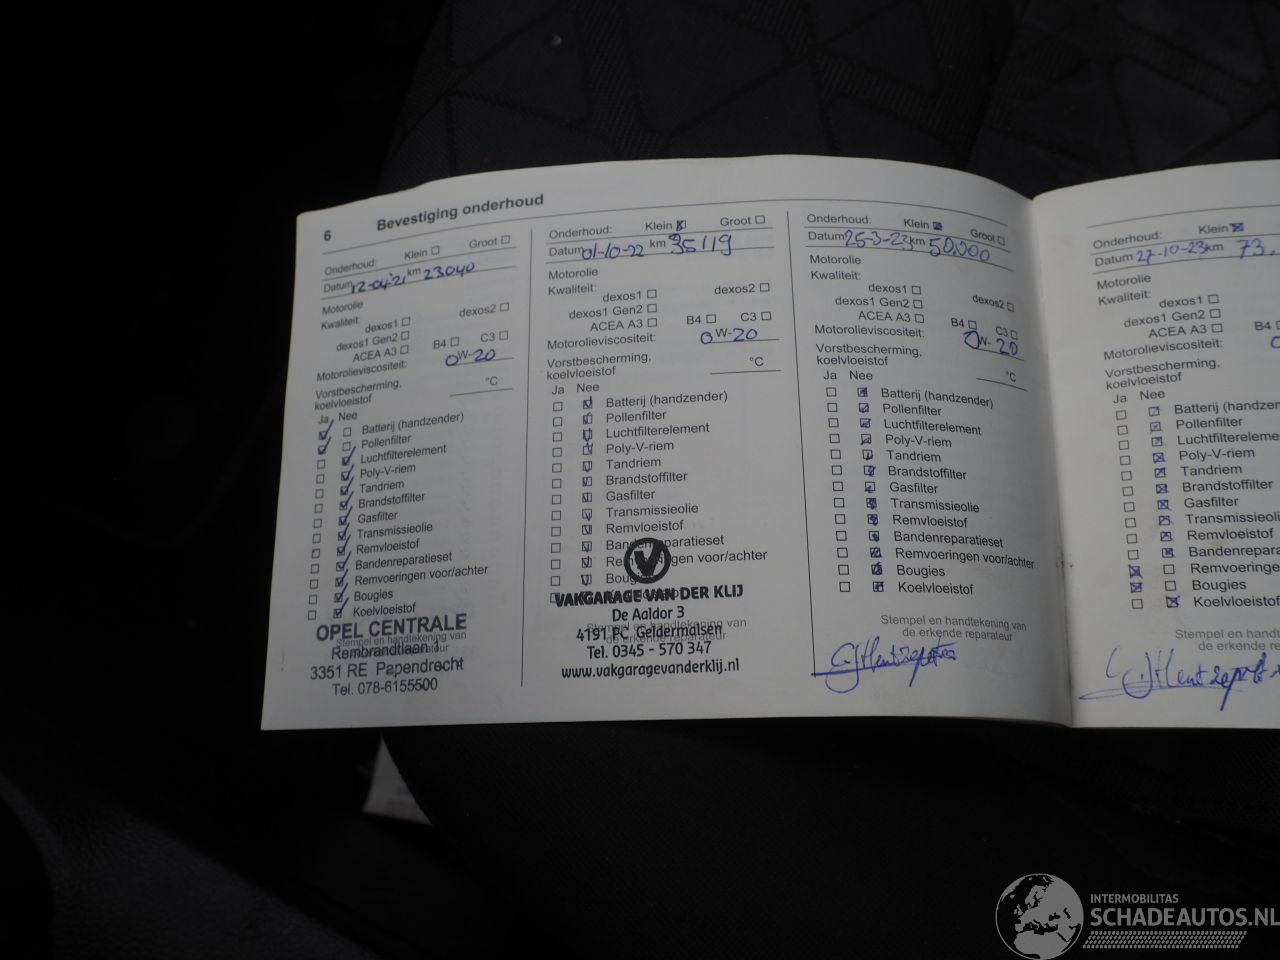 6 Bevestiging onderhoud
Onderhoud: Klein Groot
Datum 12-04-'21 km 23040
Motorolie
Kwaliteit:
dexos1 dexos2
dexos1 Gen2
ACEA A3 B4 C3
Motorolieviscositeit: 0W-20
Vorstbescherming,
koelvloeistof °C
Ja Nee
Batterij (handzender)
Pollenfilter
Luchtfilterelement
Poly-V-riem
Tandriem
Brandstoffilter
Gasfilter
Transmissieolie
Remvloeistof
Bandenreparatieset
Remvoeringen voor/achter
Bougies
Koelvloeistof
Stempel en handtekening van
OPEL CENTRALE
Rembrandtlaan 1
3351 RE Papendrecht
Tel. 078-6155500
Onderhoud: Klein Groot
Datum 01-10-22 km 35119
Motorolie
Kwaliteit:
dexos1 dexos2
dexos1 Gen2
ACEA A3 B4 C3
Motorolieviscositeit: 0W-20
Vorstbescherming,
koelvloeistof °C
Ja Nee
Batterij (handzender)
Pollenfilter
Luchtfilterelement
Poly-V-riem
Tandriem
Brandstoffilter
Gasfilter
Transmissieolie
Remvloeistof
Bandenreparatieset
Remvoeringen voor/achter
Bougies
Stempel en handtekening van
de erkende reparateur
V
VAKGARAGE VAN DER KLIJ
De Aaldor 3
4191 PC Geldermalsen
Tel. 0345 - 570 347
www.vakgaragevanderklij.nl
Onderhoud: Klein Groot
Datum 25-3-23 km 50.000
Motorolie
Kwaliteit:
dexos1 dexos2
dexos1 Gen2
ACEA A3 B4 C3
Motorolieviscositeit: 0W-20
Vorstbescherming,
koelvloeistof °C
Ja Nee
Batterij (handzender)
Pollenfilter
Luchtfilterelement
Poly-V-riem
Tandriem
Brandstoffilter
Gasfilter
Transmissieolie
Remvloeistof
Bandenreparatieset
Remvoeringen voor/achter
Bougies
Koelvloeistof
Stempel en handtekening van
de erkende reparateur
Onderhoud: Klein
Datum 27-10-23 km 73.
Motorolie
Kwaliteit:
dexos1
dexos1 Gen2
ACEA A3 B4
Motorolieviscositeit:
Vorstbescherming,
koelvloeistof
Ja Nee
Batterij (handzen
Pollenfilter
Luchtfiltereleme
Poly-V-riem
Tandriem
Brandstoffilter
Gasfilter
Transmissieoli
Remvloeistof
Bandenrepara
Remvoeringe
Bougies
Koelvloeistof
Stempel en handte
de erkende re
INTERMOBILITAS
SCHADEAUTOS.NL